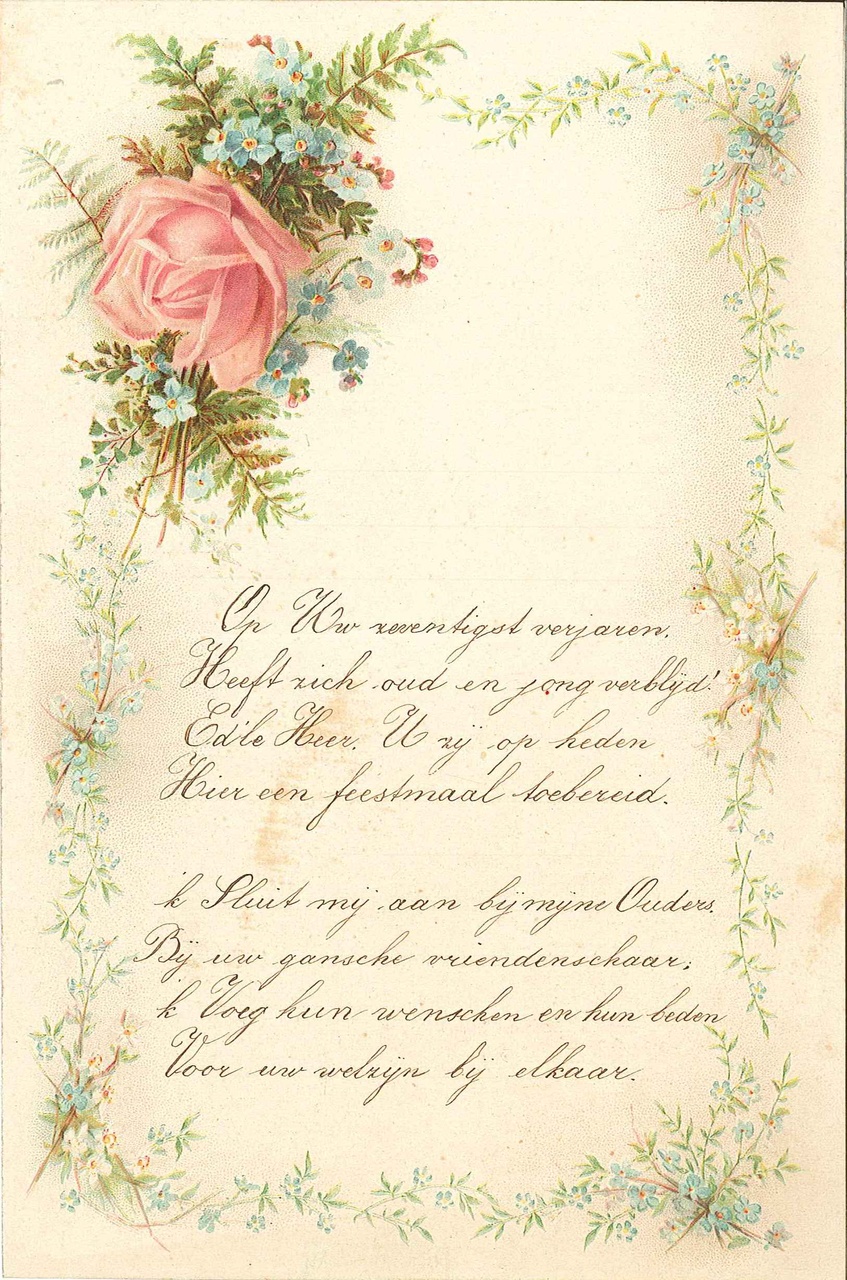 Op Uw zeventigst verjaren.
Heeft zich oud en jong verblijd!
Ed'le Heer. U zij op heden
Hier een feestmaal toebereid.
'k Sluit mij aan bij mijne Ouders.
Bij uw gansche vriendenschaar;
'k Voeg hun wenschen en hun beden
Voor uw welzijn bij elkaar.